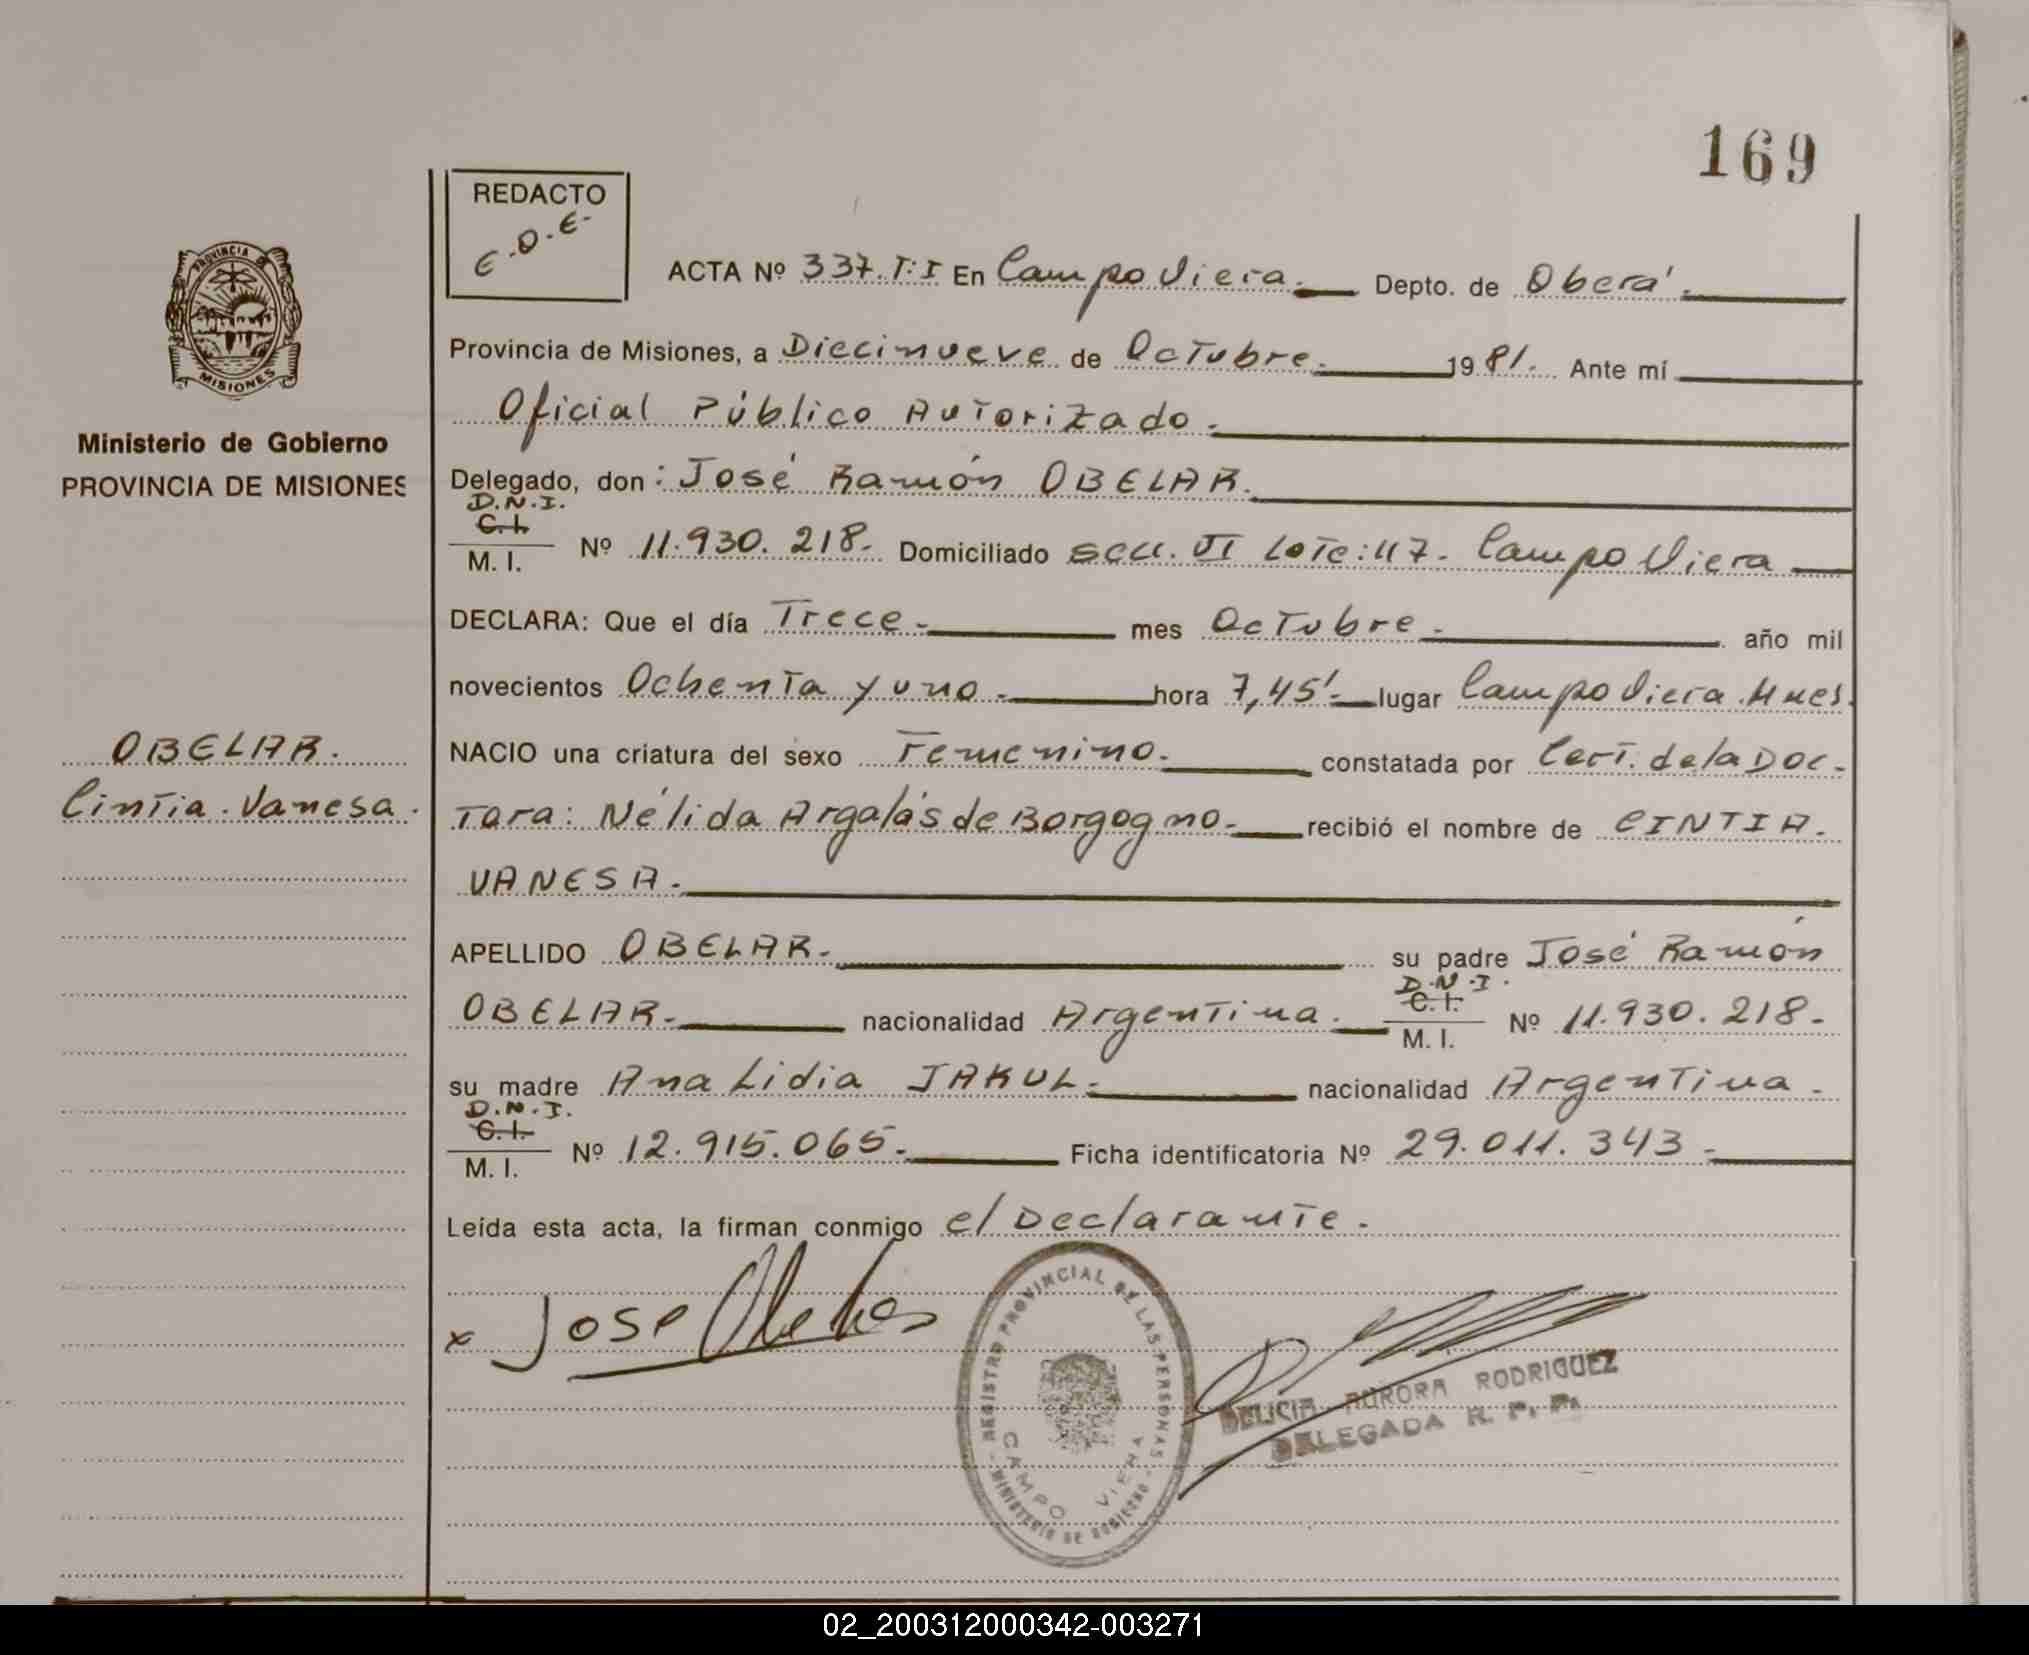 169
REDACTO
E.O.E-
ACTA Nº 337. T:I En Campo Viera. Depto. de Oberá.
PROVINCIA DE
MISIONES
Ministerio de Gobierno
PROVINCIA DE MISIONES
Provincia de Misiones, a Diecinueve de Octubre. 19 81. Ante mí
Oficial Público Autorizado.
Delegado, don: José Ramón OBELAR.
D.N.I.
C.I.
M. I. Nº 11.930.218. Domiciliado secc. VI Lote: 117. Campo Viera
DECLARA: Que el día Trece. mes Octubre. año mil
novecientos Ochenta y uno. hora 7,45'. lugar Campo Viera. Mnes.
OBELAR.
Cintia. Vanesa.
NACIO una criatura del sexo Femenino. constatada por Cert. de la Doc-
tora: Nélida Argalás de Borgogno. recibió el nombre de CINTIA.
VANESA.
APELLIDO OBELAR. su padre José Ramón
OBELAR. nacionalidad Argentina. D.N.I. C.I. M. I. Nº 11.930.218.
su madre Ana Lidia JAKUL. nacionalidad Argentina.
D.N.I.
C.I.
M. I. Nº 12.915.065. Ficha identificatoria Nº 29.011.343
Leída esta acta, la firman conmigo el Declarante.
x Jose Obelar
REGISTRO PROVINCIAL DE LAS PERSONAS
CAMPO VIERA
MINISTERIO DE GOBIERNO
DELICIA AURORA RODRIGUEZ
DELEGADA R. P. P.
02_200312000342-003271